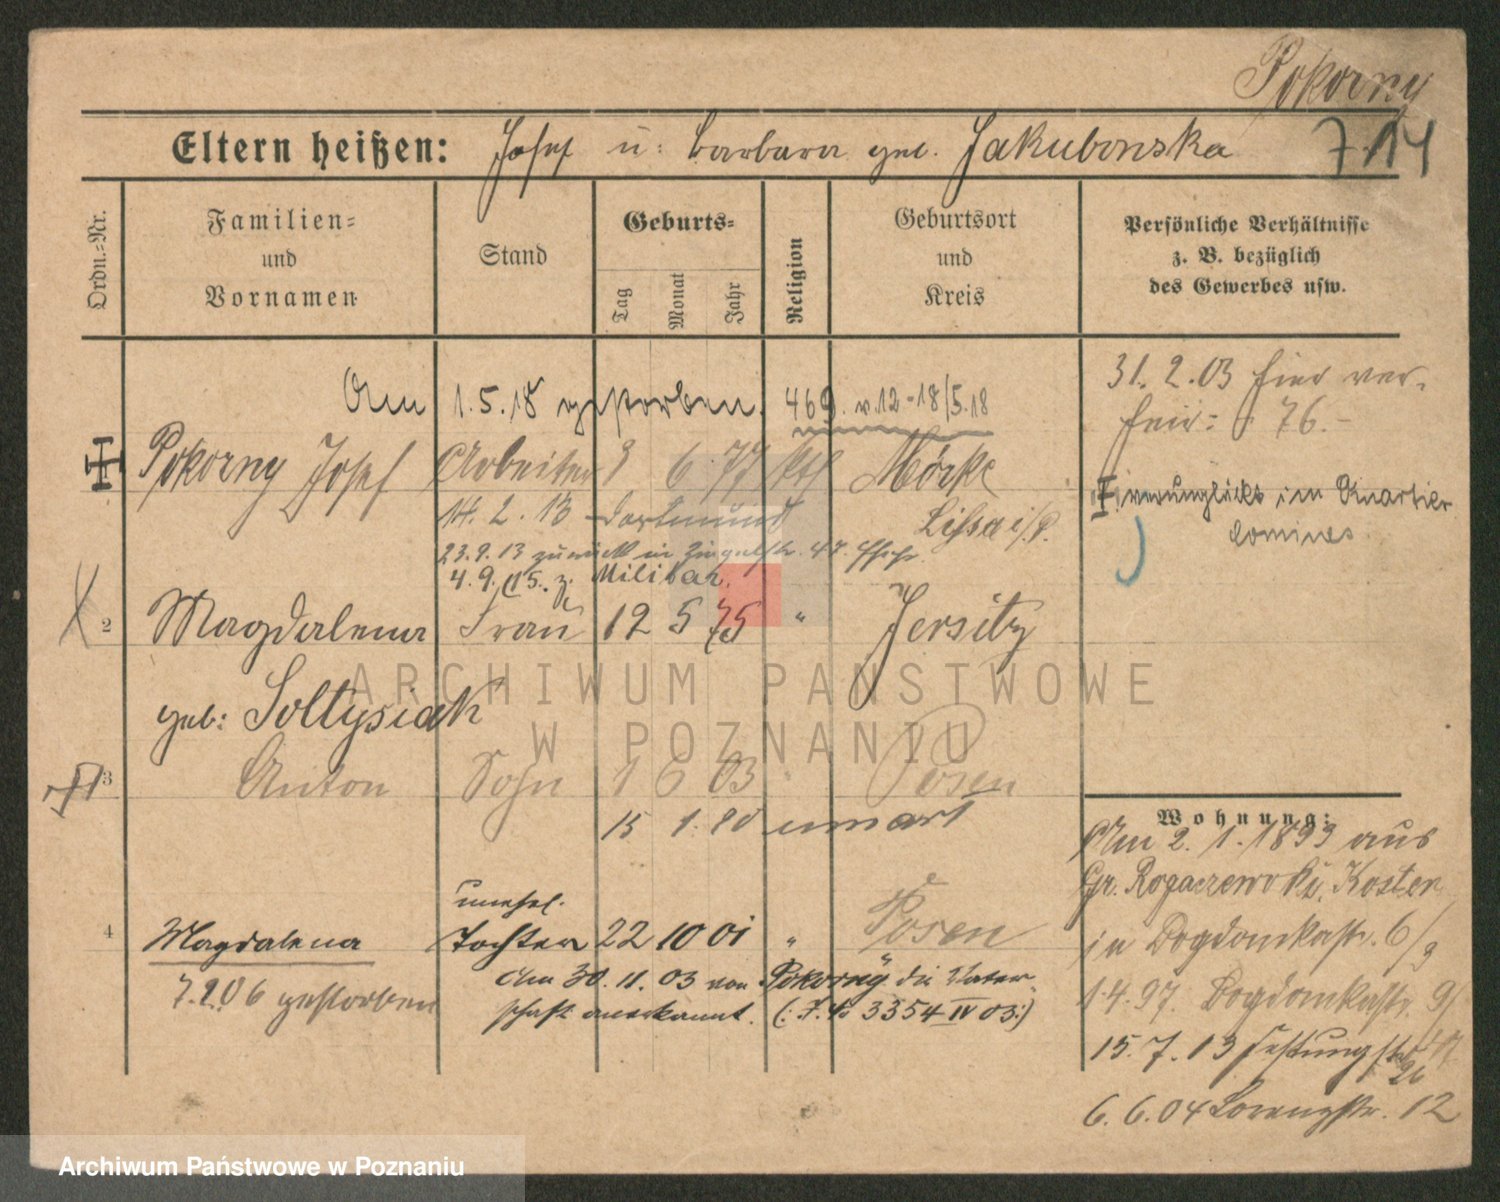 Pokorny
Eltern heißen: Josef u. Barbara geb. Jakubowska 714
Ordn.=Nr.
Familien=
und
Vornamen
Stand
Geburts=
Tag
Monat
Jahr
Religion
Geburtsort
und
Kreis
Persönliche Verhältnisse
z. B. bezüglich
des Gewerbes usw.
Am 1.5.18 gestorben. 469. v. 12-18/5.18
Pokorny Josef Arbeiter 6 77 kth
14. 2. 13 Dortmund
Lissa i/P.
23.9.13 zurück in 47.
4.9.15. z. Militär.
31. 2. 03 hier ver-
76.-
verunglückt im Quartier
2 Magdalena Frau 12 5 75 " Jersitz
geb: Soltysiak
3 Anton Sohn 1 6 03 " Posen
15 1.
4 Magdalena unehel.
Tochter 22 10 01 " Posen
Am 30. 11. 03 von Pokorny die Vater-
schaft anerkannt. (: 3354 IV 03:)
gestorben
Wohnung:
Am 2. 1. 1899 aus
Gr. Kosten
in 6/9
1.4.97. 9/
15. 7. 13 Festungstr.
26
6. 6. 04 Lorenzstr. 12
ARCHIWUM PAŃSTWOWE
W POZNANIU
Archiwum Państwowe w Poznaniu